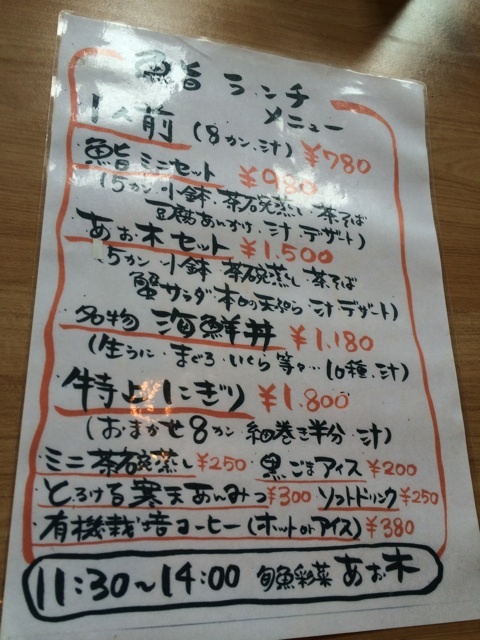 鮨 ランチ
メニュー
1人前 (8カン.汁) ¥780
鮨ミニセット ¥980
(5カン.小鉢.茶碗蒸し.茶そば
豆腐あんかけ.汁.デザート)
あお木セット ¥1,500
(5カン.小鉢.茶碗蒸し.茶そば
蟹サラダ.本日の天ぷら.汁.デザート)
名物 海鮮丼 ¥1,180
(生うに.まぐろ.いくら等々…10種.汁)
特上にぎり ¥1,800
(おまかせ8カン 細巻き半分.汁)
ミニ茶碗蒸し ¥250 黒ごまアイス ¥200
とろける寒天あんみつ ¥300 ソフトドリンク ¥250
有機栽培コーヒー(ホットorアイス) ¥380
11:30~14:00 旬魚彩菜 あお木